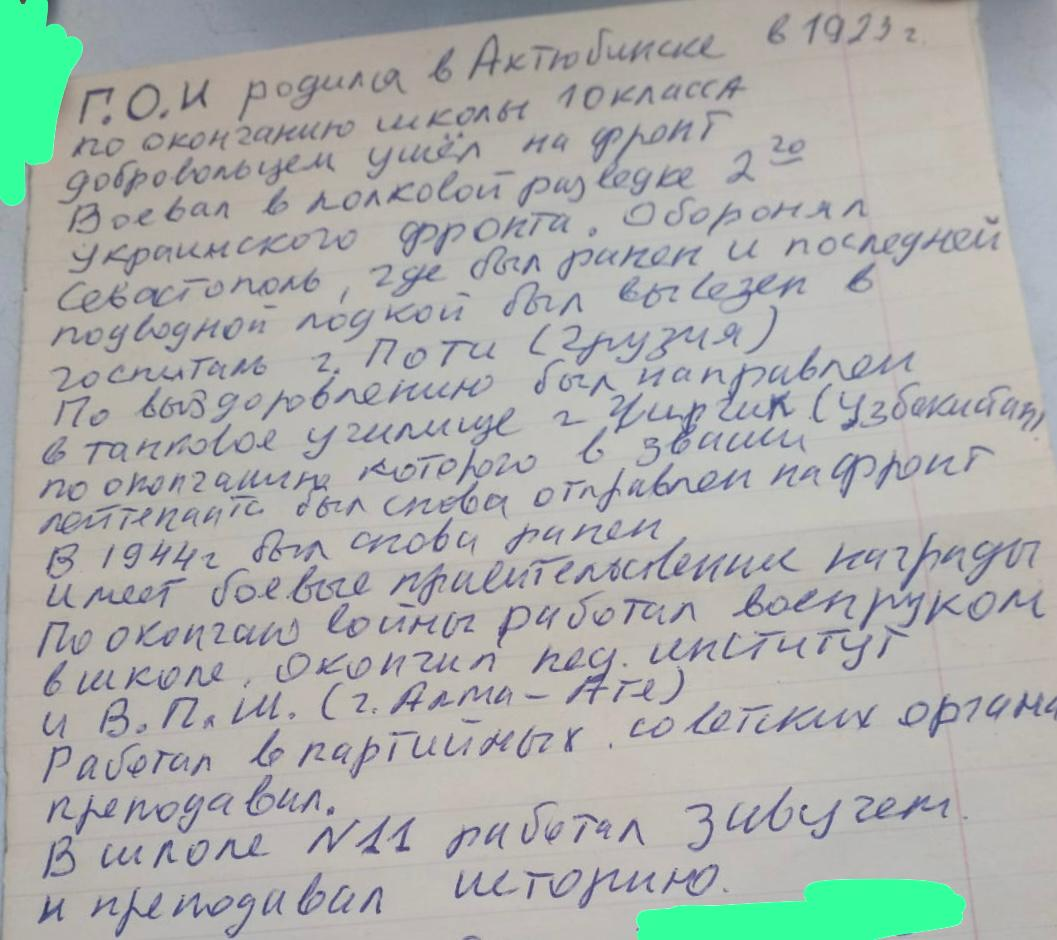 Г.О.И родился в Актюбинске в 1923 г.
по окончанию школы 10 класса
добровольцем ушёл на фронт
Воевал в полковой разведке 2го
Украинского фронта. Оборонял
Севастополь, где был ранен и последней
подводной лодкой был вывезен в
госпиталь г. Поти (Грузия)
По выздоровлению был направлен
в танковое училище г Чирчик (Узбекистан)
по окончании которого в звании
лейтенанта был снова отправлен на фронт
В 1944г был снова ранен
имеет боевые правительственные награды
По окончанию войны работал военруком
в школе. Окончил пед. институт
и В.П.Ш. (г. Алма-Ате)
Работал в партийных советских органа
преподавал.
В школе №11 работал завучем
и преподавал историю.